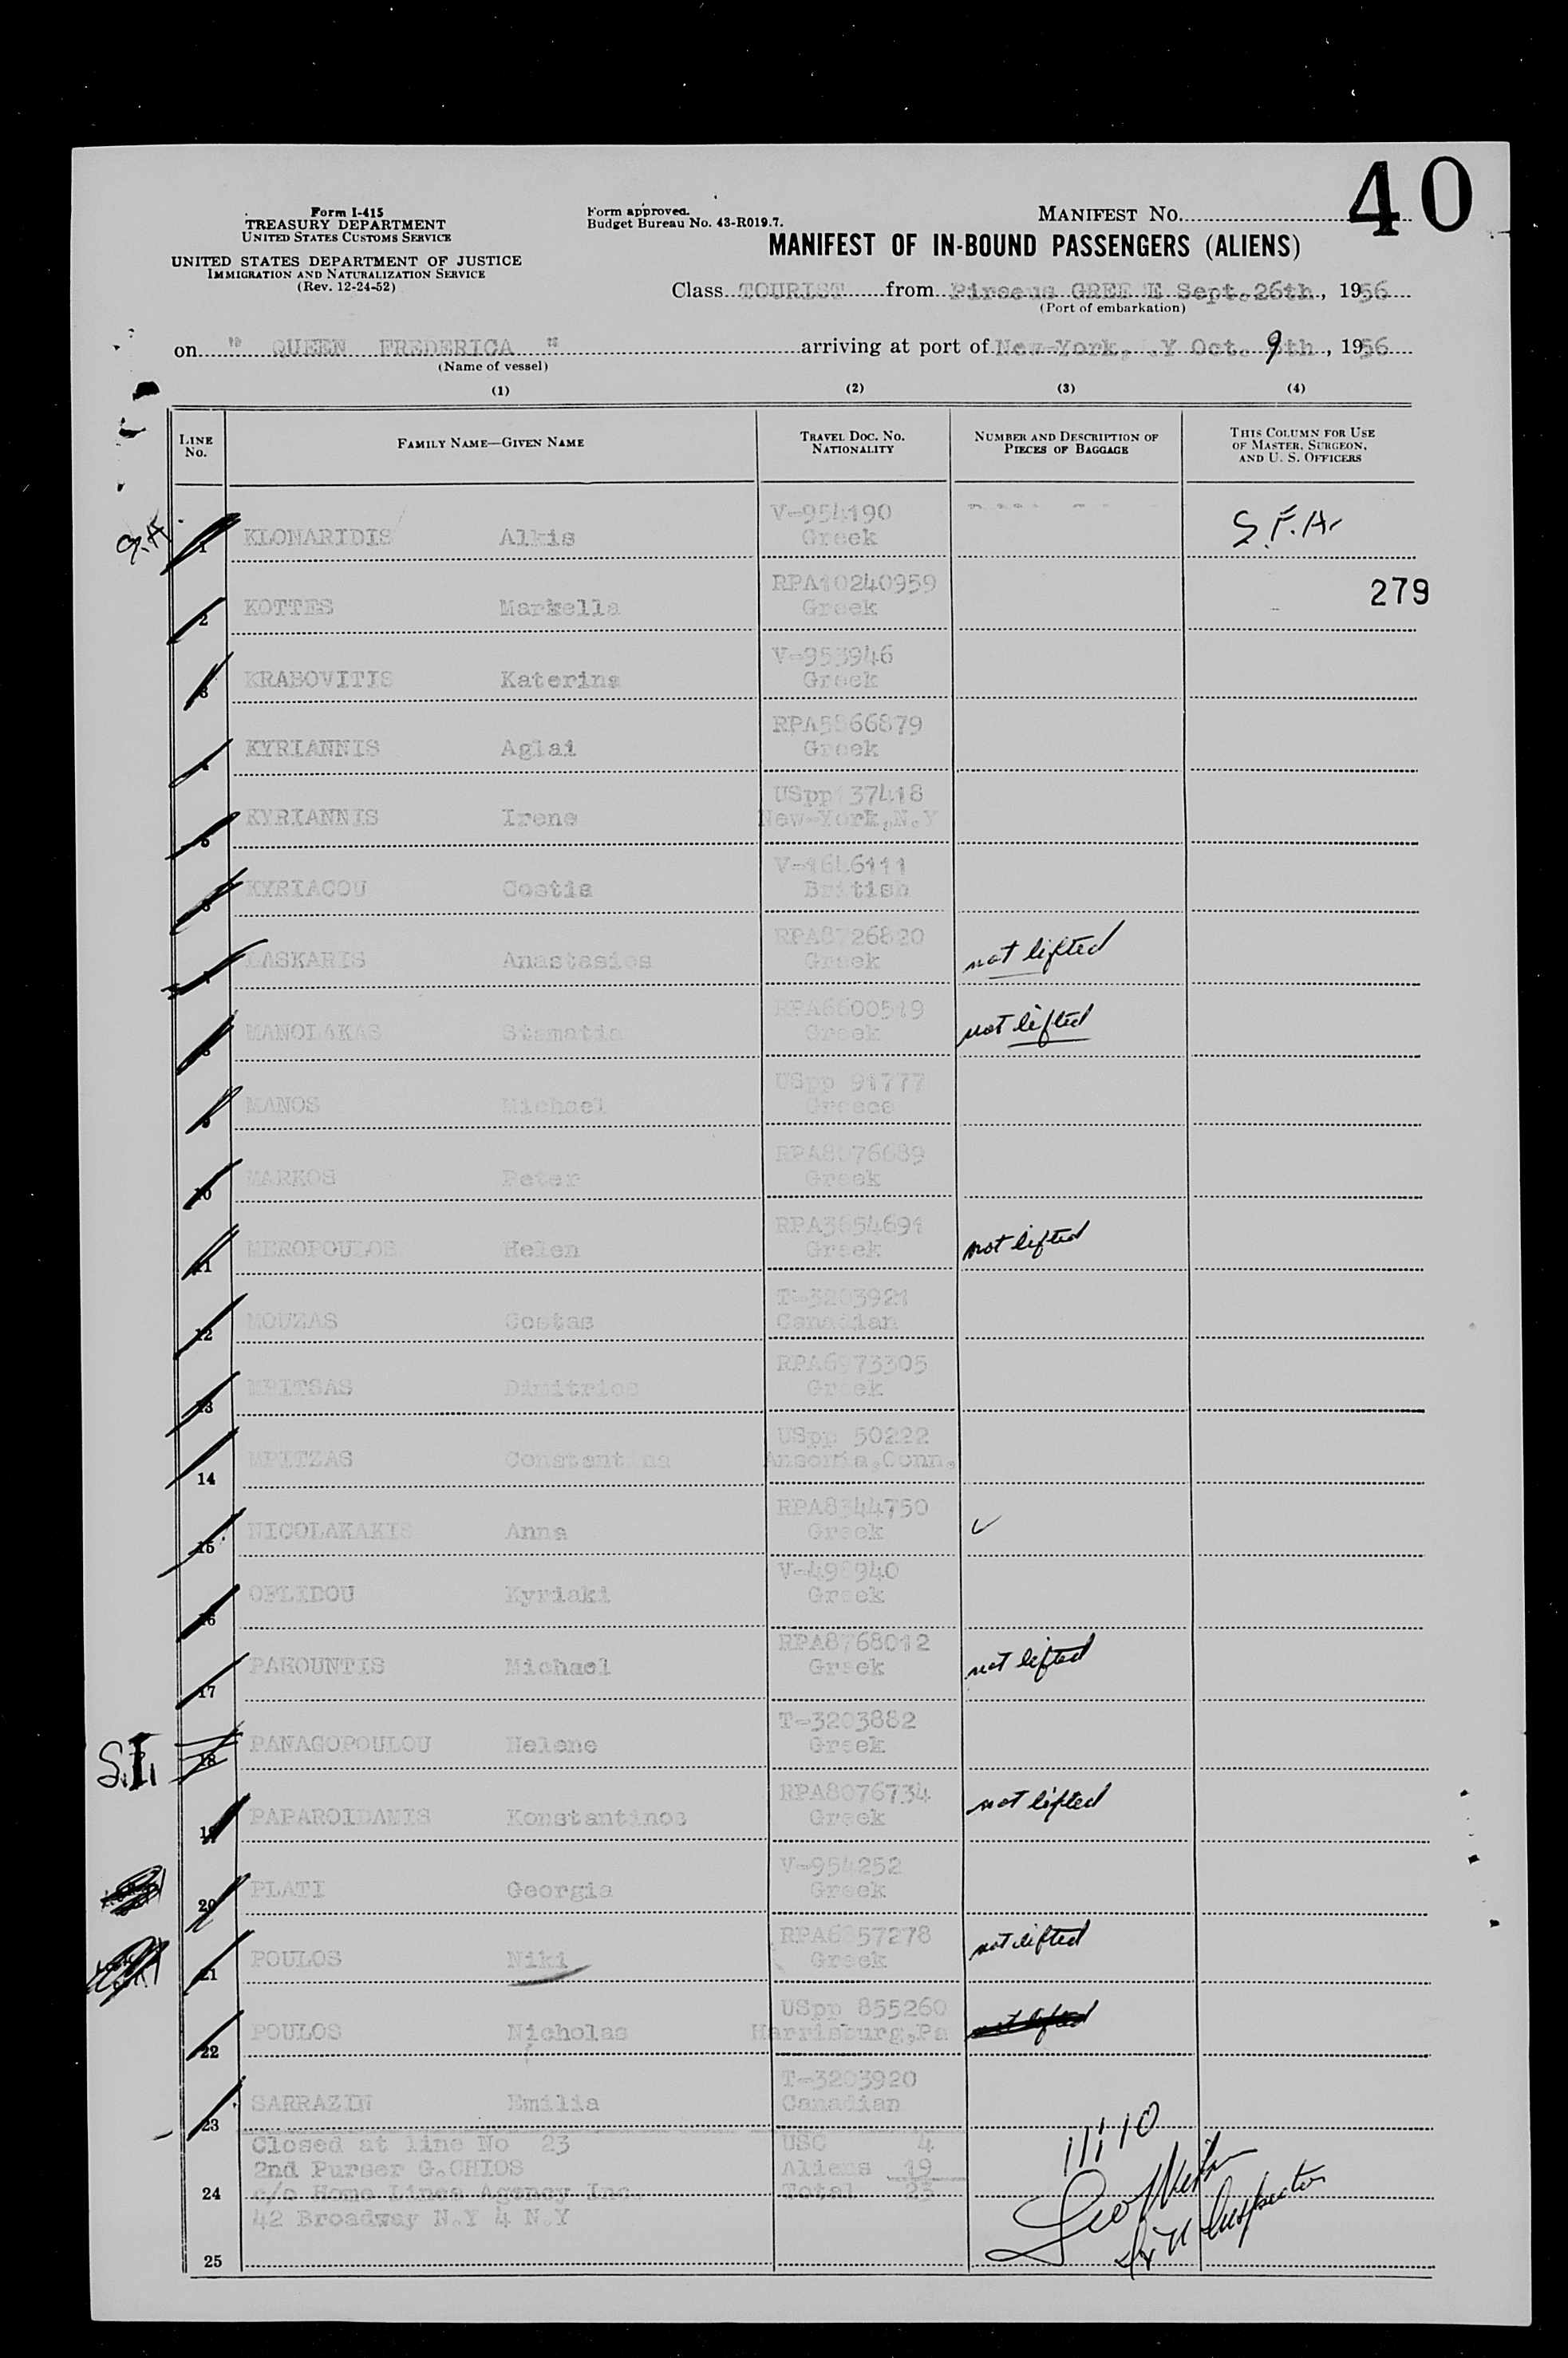 40
Form I-415
TREASURY DEPARTMENT
UNITED STATES CUSTOMS SERVICE
UNITED STATES DEPARTMENT OF JUSTICE
IMMIGRATION AND NATURALIZATION SERVICE
(Rev. 12-24-52)
Form approved.
Budget Bureau No. 43-R019.7.
MANIFEST NO.
MANIFEST OF IN-BOUND PASSENGERS (ALIENS)
Class TOURIST from Piraeus GREE E Sept.26th, 1956
(Port of embarkation)
on " QUEEN FREDERICA " arriving at port of New-York, .Y Oct. 9th, 1956
(Name of vessel)
(1) (2) (3) (4)
LINE No. FAMILY NAME—GIVEN NAME TRAVEL DOC. NO. NATIONALITY NUMBER AND DESCRIPTION OF PIECES OF BAGGAGE THIS COLUMN FOR USE OF MASTER, SURGEON, AND U. S. OFFICERS
1 KLONARIDIS Alkis V-954190 Greek S.F.A.
279
2 KOTTES Markella RPA10240959 Greek
3 KRABOVITIS Katerina V-953946 Greek
4 KYRIANNIS Aglai Greek
5 KYRIANNIS Irene USpp 37418 New-York,N.Y
6 KYRIACOU Costis V-1646111 British
7 LASKARIS Anastasios RPA8726820 Greek not lifted
8 MANOLAKAS Stamatia RPA6600519 Greek not lifted
9 MANOS Michael USpp 91777 Greece
10 MARKOS Peter RPA8076689 Greek
11 MEROPOULOS Helen Greek not lifted
12 MOUZAS Costas T-3203921 Canadian
13 MPITSAS Dimitrios RPA6973305 Greek
14 MPITZAS Constantina USpp 50222 Ansonia,Conn.
15 NICOLAKAKIS Anna RPA8344750 Greek ✓
16 OFLIDOU Kyriaki V-498940 Greek
17 PAKOUNTIS Michael RPA8768012 Greek not lifted
S.I. 18 PANAGOPOULOU Helene T-3203882 Greek
19 PAPAROIDAMIS Konstantinos RPA8076734 Greek not lifted
20 PLATI Georgia V-954252 Greek
21 POULOS Niki Greek not lifted
22 POULOS Nicholas USpp 855260 Harrisburg,Pa not lifted
23 SARRAZIN Emilia T-3203920 Canadian
Closed at line No 23 USC 4
2nd Purser G.CHIOS Aliens 19
24 c/o Home Lines Agency Inc. Total 23
42 Broadway N.Y 4 N.Y
Inspector
25